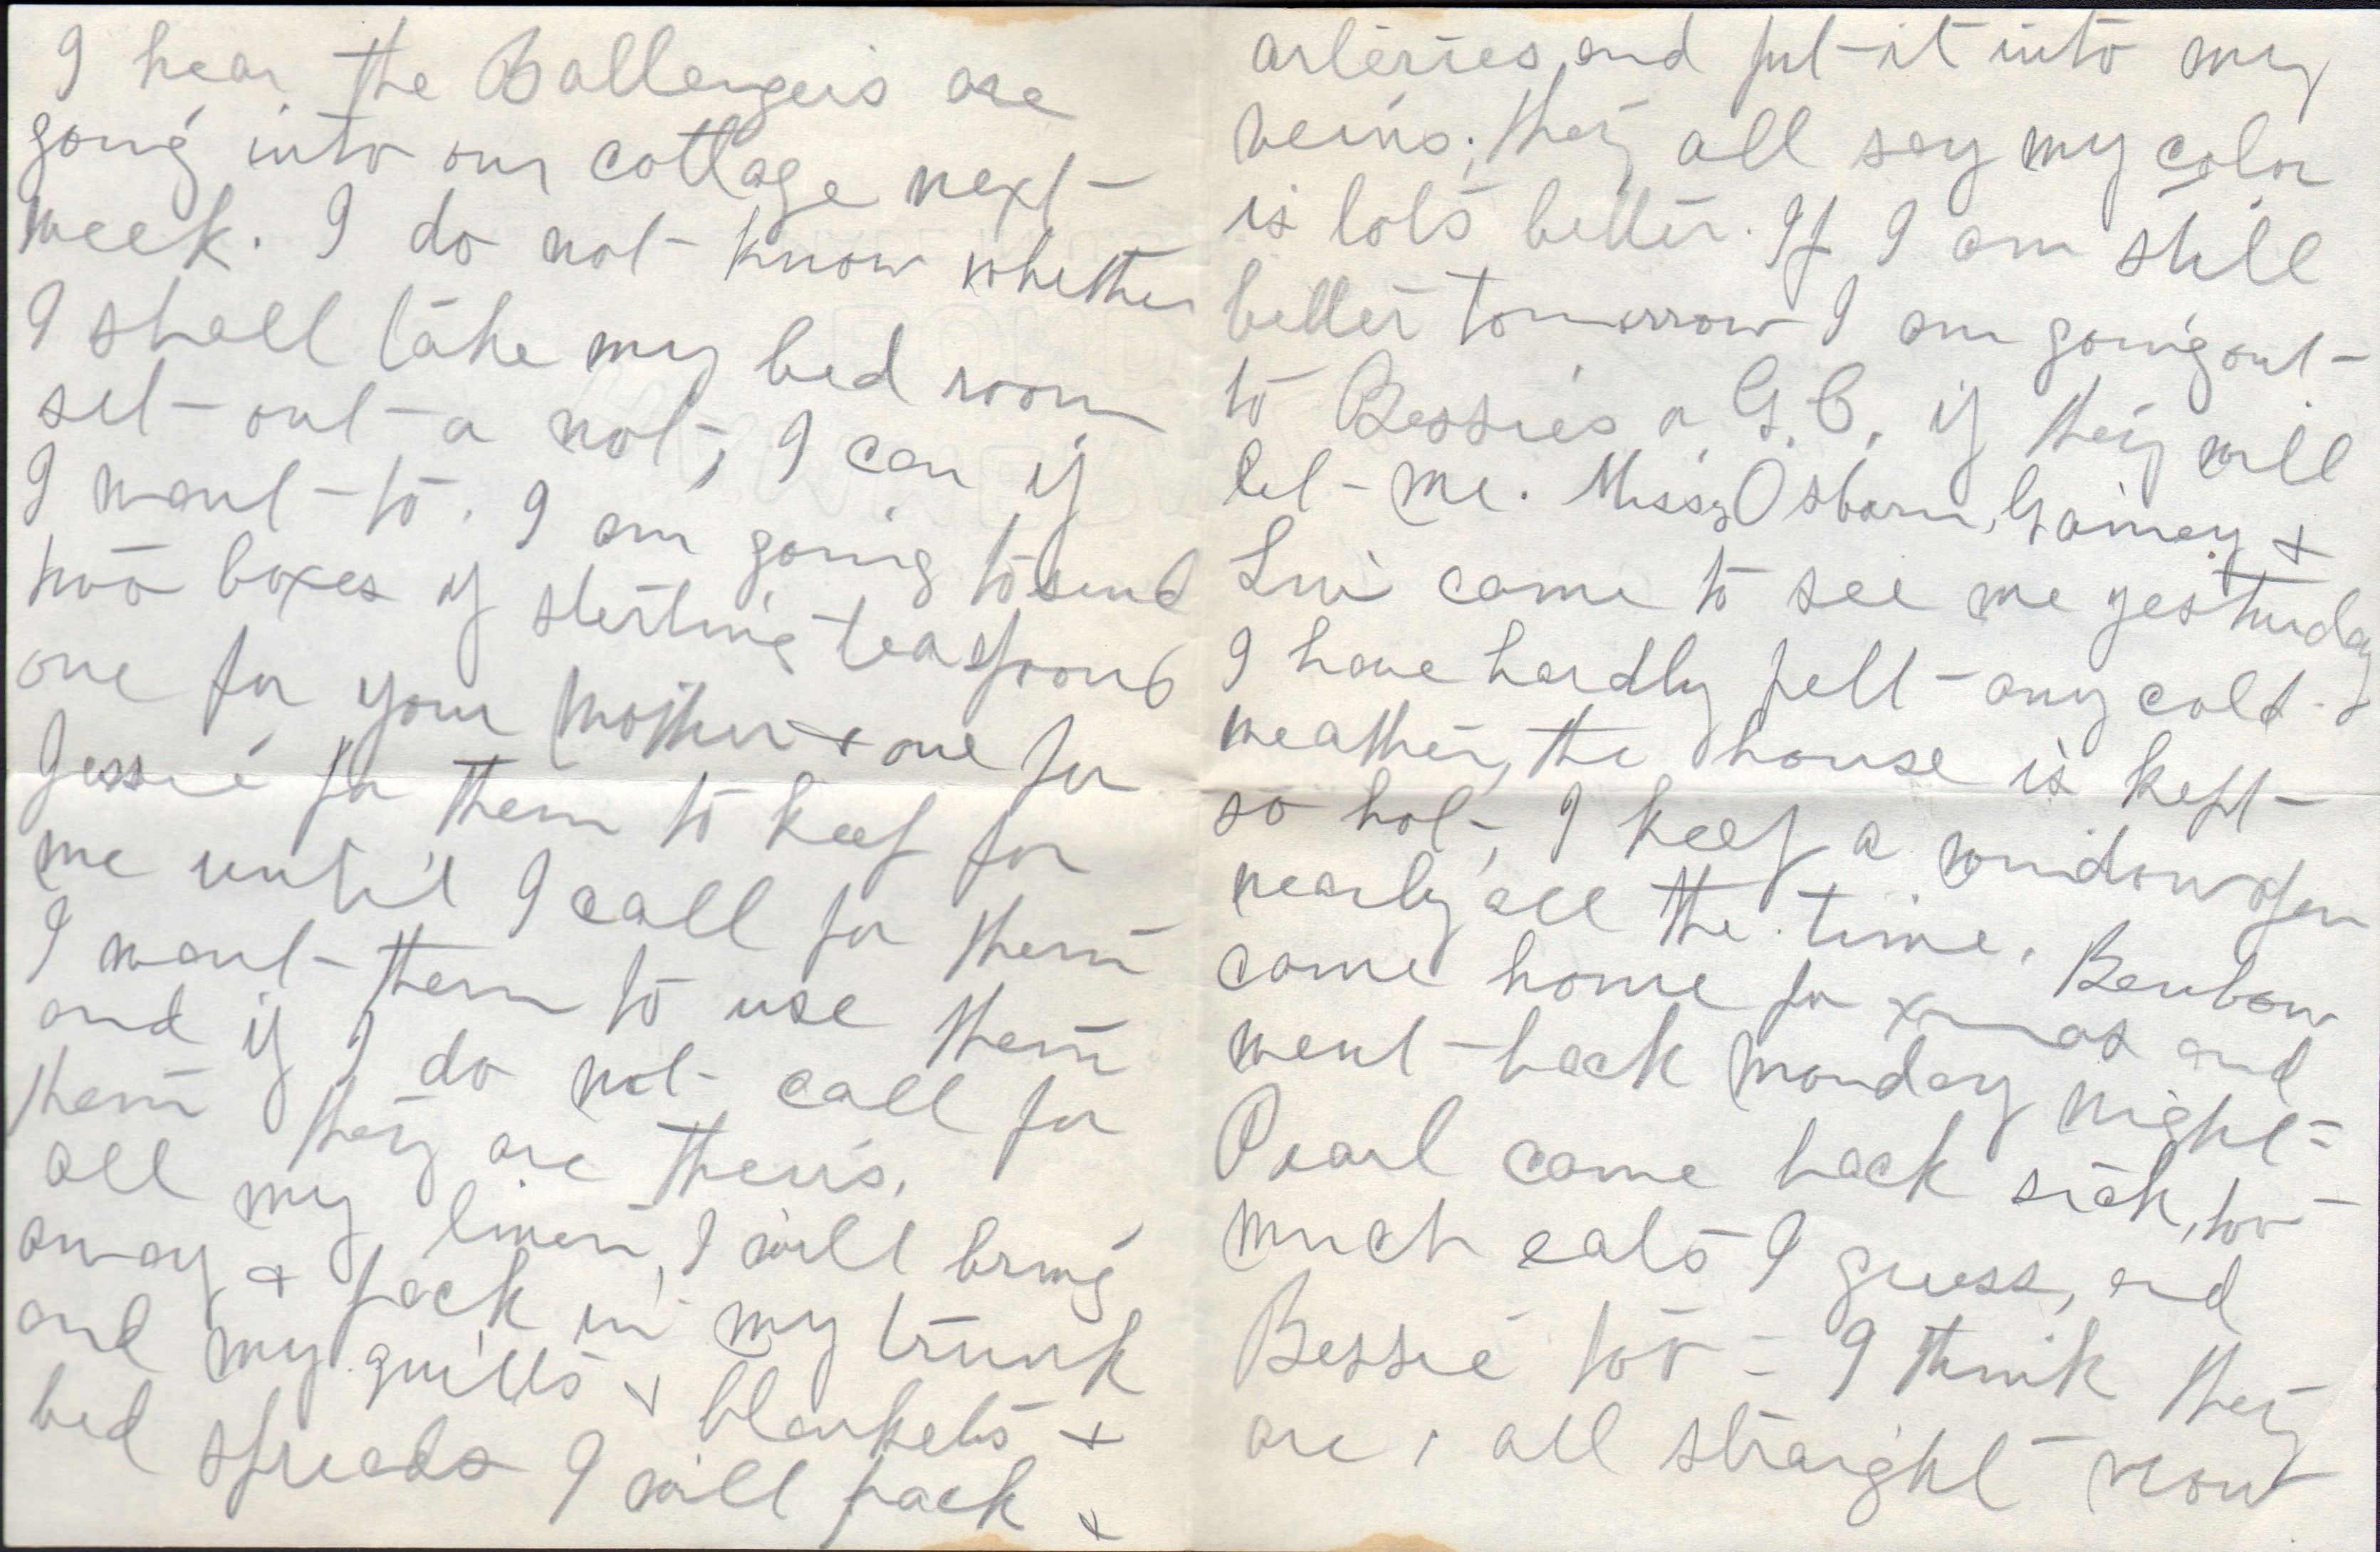 I hear the Ballengers are
going into our cottage next
week. I do not know whether
I shall take my bed room
set out or not, I can if
I want to. I am going to send
two boxes of sterling teaspoons
one for your mother & one for
Jessie for them to keep for
me until I call for them
I want them to use them
and if I do not call for
them they are theirs.
all my linen, I will bring
away & pack in my trunk
and my quilts & blankets &
bed spreads I will pack &
arteries and put it into my
veins; they all say my color
is lots better. If I am still
better tomorrow I am going out
to Bessie's or G.C. if they will
let me. Misses Osborn, Gainey &
came to see me yesturday
I have hardly felt any cold
weather, the house is kept
so hot, I keep a window open
nearly all the time. Benbow
came home for xmas and
went back monday night
Pearl came back sick, too
much eats I guess, and
Bessie too - I think they
are all straight now